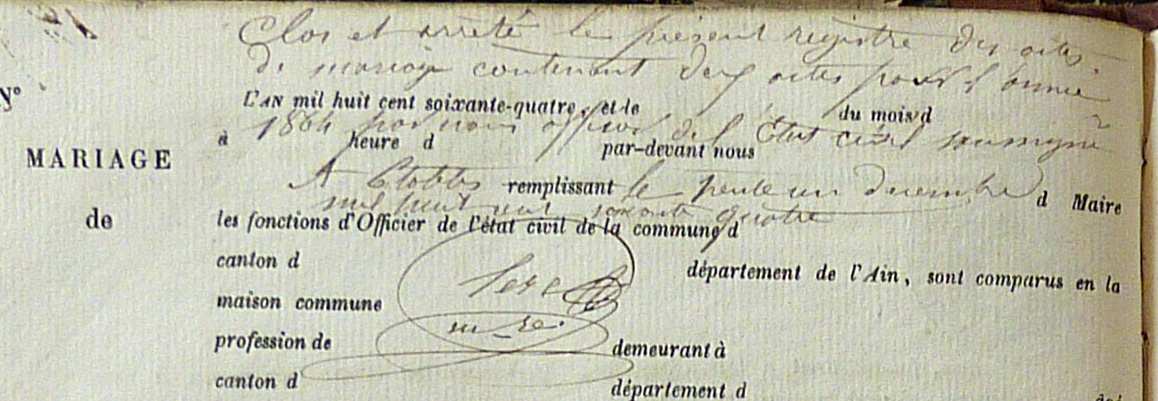 Clos et arrêté le présent registre des actes
de mariage contenant deux actes pour l'année
N°
L'AN mil huit cent soixante-quatre, et le du mois d
1864 par nous officier de l'État civil soussigné
à heure d par-devant nous
MARIAGE
A le trente un décembre
remplissant d Maire
mil huit cent soixante quatre
de
les fonctions d'Officier de l'état civil de la commune d
canton d département de l'Ain, sont comparus en la
maison commune
profession de demeurant à
canton d département d